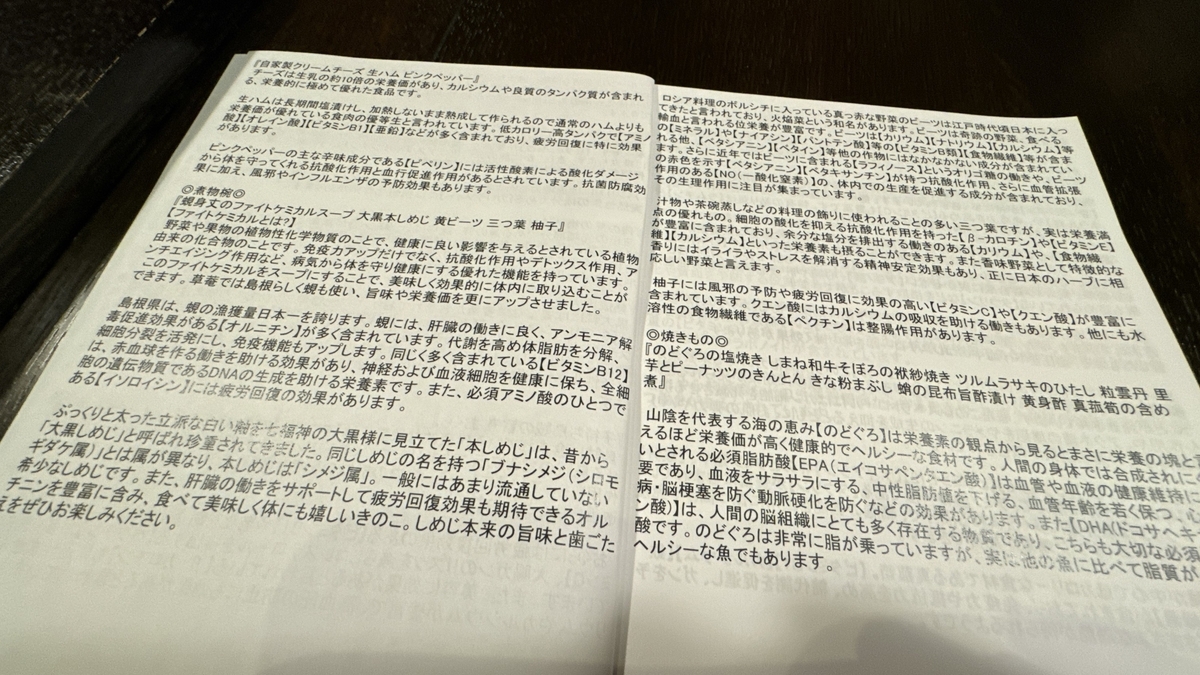 『自家製クリームチーズ 生ハム ピンクペッパー』
チーズは生乳の約10倍の栄養価があり、カルシウムや良質のタンパク質が含まれ
る、栄養的に極めて優れた食品です。
生ハムは長期間塩漬けし、加熱しないまま熟成して作られるので通常のハムよりも
栄養価が優れている食肉の優等生と言われています。低カロリー高タンパクで【アミノ
酸】【オレイン酸】【ビタミンB1】【亜鉛】などが多く含まれており、疲労回復に特に効果
があります。
ピンクペッパーの主な辛味成分である【ピペリン】には活性酸素による酸化ダメージ
から体を守ってくれる抗酸化作用と血行促進作用があるとされています。抗菌防腐効
果に加え、風邪やインフルエンザの予防効果もあります。
◎煮物椀◎
『蜆身丈のファイトケミカルスープ 大黒本しめじ 黄ビーツ 三つ葉 柚子』
【ファイトケミカルとは?】
野菜や果物の植物性化学物質のことで、健康に良い影響を与えるとされている植物
由来の化合物のことです。免疫力アップだけでなく、抗酸化作用やデトックス作用、ア
ンチエイジング作用など、病気から体を守り健康にする優れた機能を持っています。
このファイトケミカルをスープにすることで、美味しく効果的に体内に取り込むことが
できます。草菴では島根らしく蜆も使い、旨味や栄養価を更にアップさせました。
島根県は、蜆の漁獲量日本一を誇ります。蜆には、肝臓の働きに良く、アンモニア解
毒促進効果がある【オルニチン】が多く含まれています。代謝を高め体脂肪を分解、
細胞分裂を活発にし、免疫機能もアップします。同じく多く含まれている【ビタミンB12】
は、赤血球を作る働きを助ける効果があり、神経および血液細胞を健康に保ち、全細
胞の遺伝物質であるDNAの生成を助ける栄養素です。また、必須アミノ酸のひとつで
ある【イソロイシン】には疲労回復の効果があります。
ぷっくりと太った立派な白い軸を七福神の大黒様に見立てた「本しめじ」は、昔から
「大黒しめじ」と呼ばれ珍重されてきました。同じしめじの名を持つ「ブナシメジ(シロモ
ギダケ属)」とは属が異なり、本しめじは「シメジ属」。一般にはあまり流通していない
希少なしめじです。また、肝臓の働きをサポートして疲労回復効果も期待できるオル
チニンを豊富に含み、食べて美味しく体にも嬉しいきのこ。しめじ本来の旨味と歯ごた
えをぜひお楽しみください。
ロシア料理のボルシチに入っている真っ赤な野菜のビーツは江戸時代頃日本に入っ
てきたと言われており、火焔菜という和名があります。ビーツは奇跡の野菜、食べる
輸血と言われる位栄養が豊富です。ビーツは【カリウム】【ナトリウム】【カルシウム】等
の【ミネラル】や【ナイアシン】【パントテン酸】等の【ビタミンB類】【食物繊維】等が含ま
れる他、【ベタシアニン】【ベタイン】等他の作物にはなかなかない成分が含まれてい
ます。さらに近年ではビーツに含まれる【ラフィノース】というオリゴ糖の働きや、ビーツ
の赤色を示す【ベタシアニン】【ベタキサンチン】が持つ抗酸化作用、さらに血管拡張
作用のある【NO(一酸化窒素)】の、体内での生産を促進する成分が含まれており、
その生理作用に注目が集まっています。
汁物や茶碗蒸しなどの料理の飾りに使われることの多い三つ葉ですが、実は栄養満
点の優れもの。細胞の酸化を抑える抗酸化作用を持った【β-カロチン】や【ビタミンE】
が豊富に含まれており、余分な塩分を排出する働きのある【カリウム】や、【食物繊
維】【カルシウム】といった栄養素も摂ることができます。また香味野菜として特徴的な
香りにはイライラやストレスを解消する精神安定効果もあり、正に日本のハーブに相
応しい野菜と言えます。
柚子には風邪の予防や疲労回復に効果の高い【ビタミンC】や【クエン酸】が豊富に
含まれています。クエン酸にはカルシウムの吸収を助ける働きもあります。他にも水
溶性の食物繊維である【ペクチン】は整腸作用があります。
◎焼きもの◎
『のどぐろの塩焼き しまね和牛そぼろの袱紗焼き ツルムラサキのひたし 粒雲丹 里
芋とピーナッツのきんとん きな粉まぶし 蛸の昆布旨酢漬け 黄身酢 真菰筍の含め
煮』
山陰を代表する海の恵み【のどぐろ】は栄養素の観点から見るとまさに栄養の塊と言
えるほど栄養価が高く健康的でヘルシーな食材です。人間の身体では合成されに
いとされる必須脂肪酸【EPA(エイコサペンタエン酸)】は血管や血液の健康維持に
要であり、血液をサラサラにする、中性脂肪値を下げる、血管年齢を若く保つ、
病・脳梗塞を防ぐ動脈硬化を防ぐなどの効果があります。また【DHA(ドコサヘキ
ン酸)】は、人間の脳組織にとても多く存在する物質であり、こちらも大切な必須
酸です。のどぐろは非常に脂が乗っていますが、実は他の魚に比べて脂質が
ヘルシーな魚でもあります。